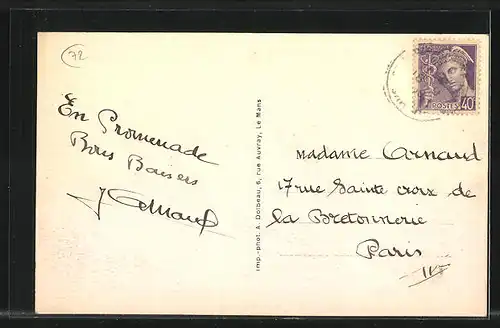 72
En Promenade
Bons Baisers
J Arnaud
Imp.-phot. A. Dolbeau, 5, rue Auvray, Le Mans
POSTES 40
Madame Arnaud
17 rue Sainte croix de
la Bretonnerie
Paris